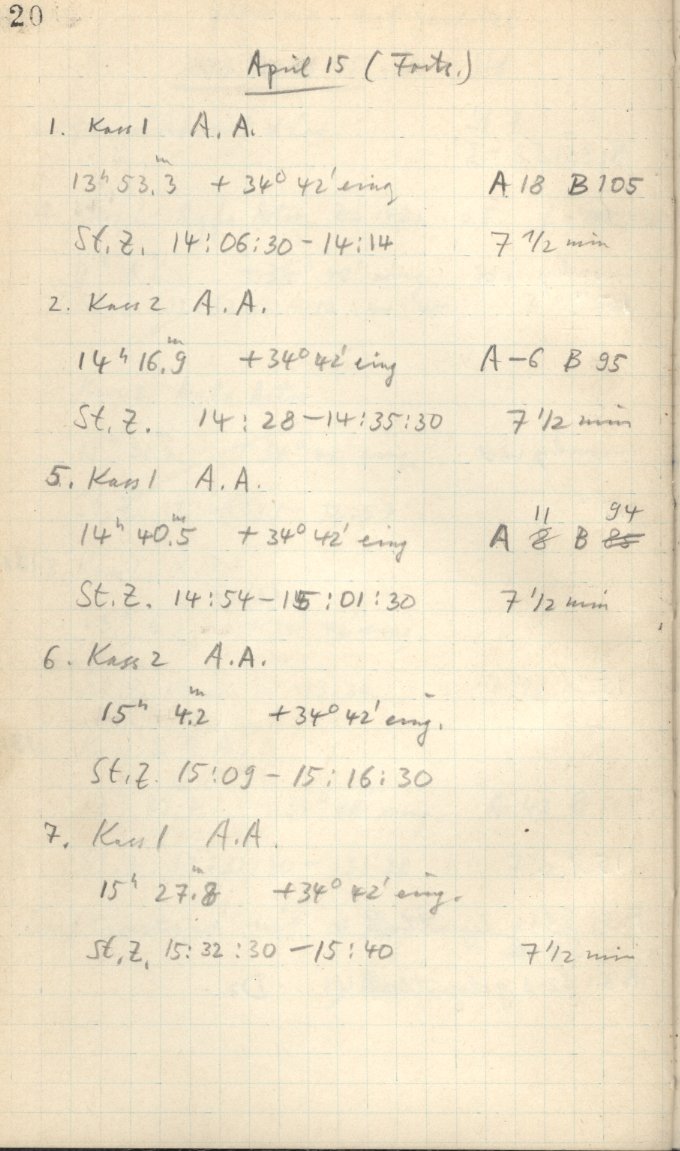 20
April 15 (Forts.)
1. Kass 1 A.A.
13ʰ 53.ᵐ3 + 34° 42' eing A 18 B 105
St.Z. 14:06:30 - 14:14 7 1/2 min
2. Kass 2 A.A.
14ʰ 16.ᵐ9 + 34° 42' eing A -6 B 95
St.Z. 14:28 - 14:35:30 7 1/2 min
5. Kass 1 A.A.
11 94
14ʰ 40.ᵐ5 + 34° 42' eing A 8 B 85
St.Z. 14:54 - 15:01:30 7 1/2 min
6. Kass 2 A.A.
15ʰ 4.ᵐ2 + 34° 42' eing.
St.Z. 15:09 - 15:16:30
7. Kass 1 A.A.
15ʰ 27.ᵐ8 + 34° 42' eing.
St.Z. 15:32:30 - 15:40 7 1/2 min